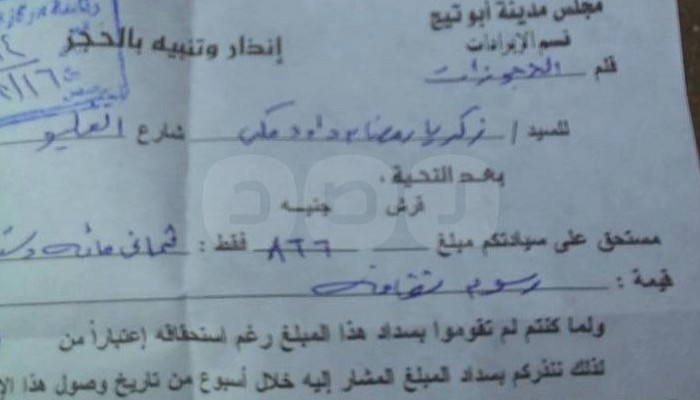 مجلس مدينة أبو تيج
قسم الإيرادات
إنذار وتنبيه بالحجز
قلم الحجوزات
للسيد / زكريا رمضان داود مكى شارع
بعد التحية ،
قرش جنيه
مستحق على سيادتكم مبلغ ٨٦٦ فقط : ثمانى مائه
قيمة : رسوم نظافه
ولما كنتم لم تقوموا بسداد هذا المبلغ رغم استحقاقه إعتباراً من
لذلك ننذركم بسداد المبلغ المشار إليه خلال أسبوع من تاريخ وصول هذا الإ